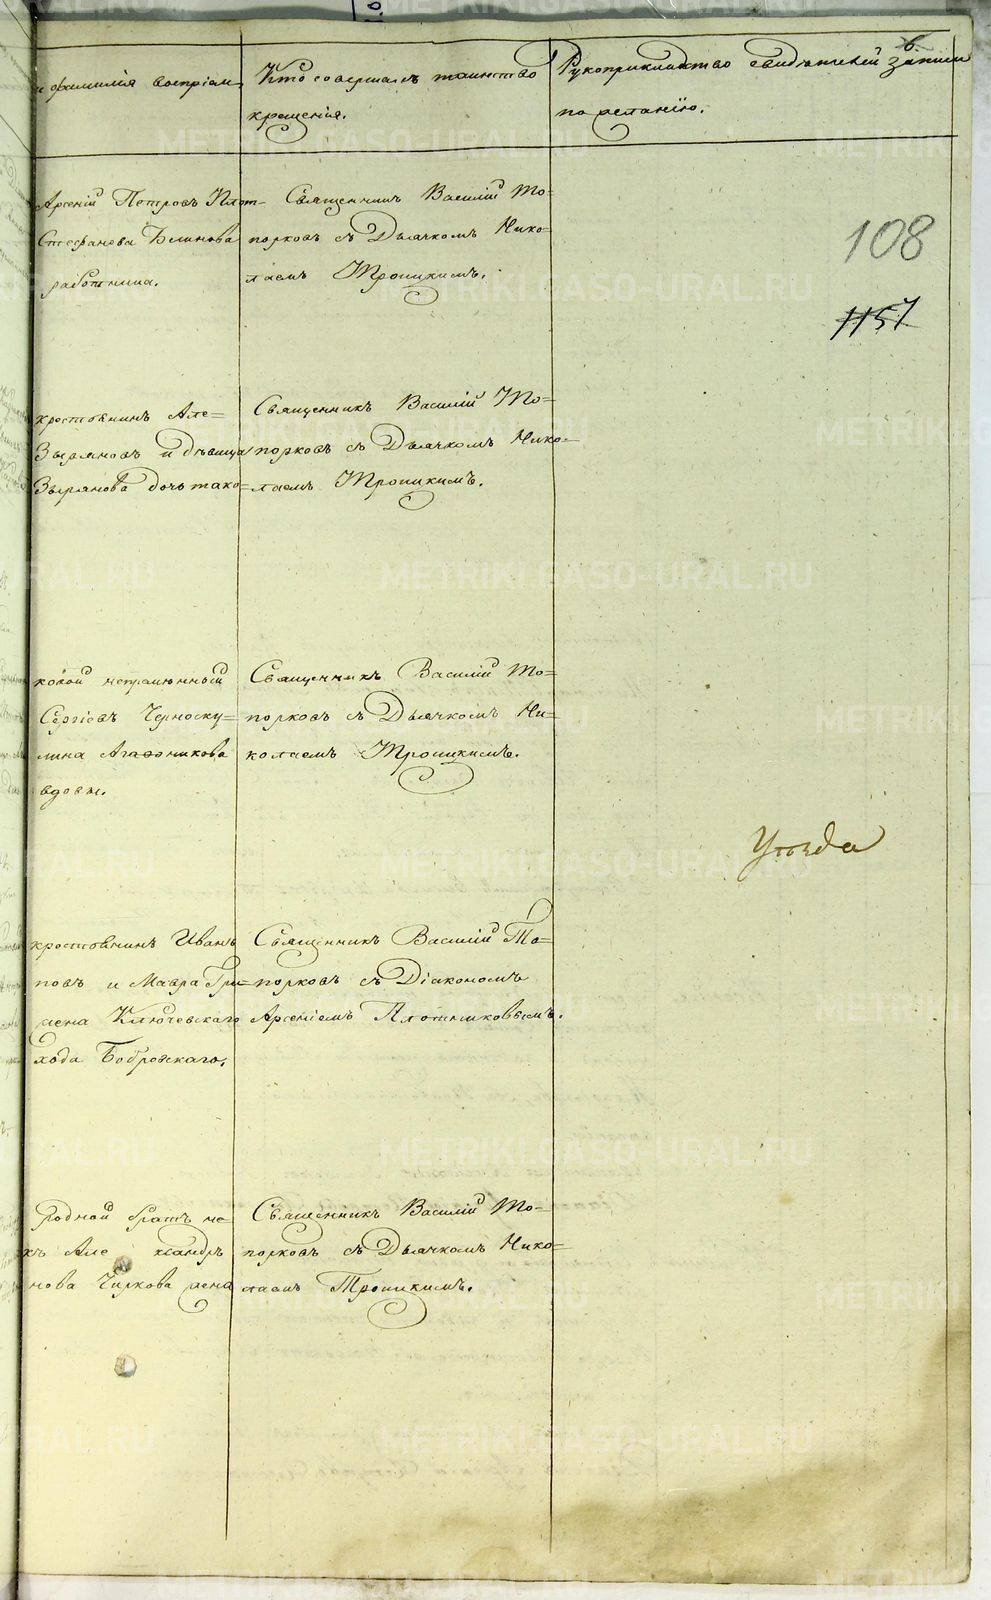 и фамилія воспріем
Кто совершалъ таинство
крещенія.
Рукоприкладство свидѣтелей записи
по желанію.
6.
108
1157
Арсеній Петровъ Плот-
Стефанова Блинова
работница.
Священникъ Василій То-
порковъ съ Дьячкомъ Нико-
лаемъ Троицкимъ.
крестьянинъ Але=
Зыряновъ и дѣвица
Зырянова дочь тако=
Священникъ Василій То=
порковъ съ Дьячкомъ Нико=
лаемъ Троицкимъ.
непремѣнный
Сергіевъ Черноску=
лина Агафоникова
вдова.
Священникъ Василій То=
порковъ съ Дьячкомъ Ни=
колаемъ Троицкимъ.
Уѣзда
крестьянинъ Иванъ
повъ и Мавра Гри=
жена Ключевскаго
хода Бобровскаго.
Священникъ Василій То=
порковъ съ Діакономъ
Арсеніемъ Плотниковымъ.
Родной братъ не=
къ Але ксандръ
нова Чиркова жена
Священникъ Василій То=
порковъ съ Дьячкомъ Нико=
лаемъ Троицкимъ.
METRIKI.GASO-URAL.RU